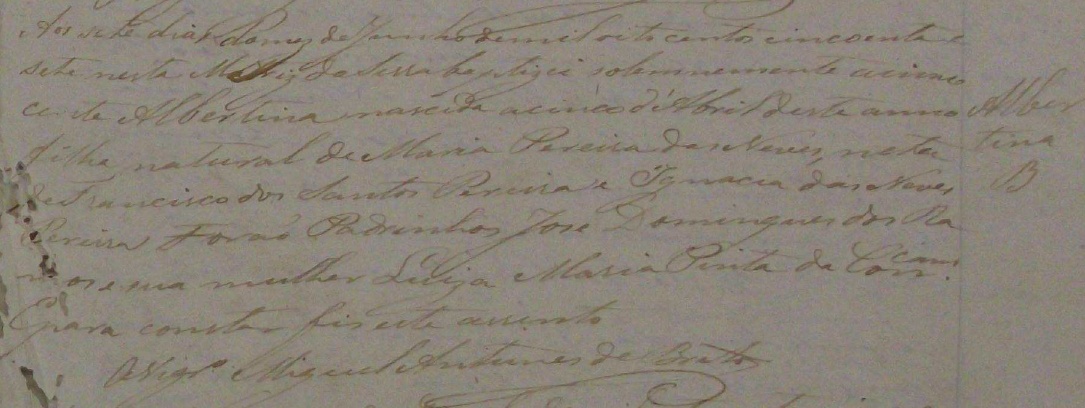 Aos sete dias do mez de Junho de mil oito centos cincoenta e
sete nesta Matriz da Serra baptizei solemnemente a inno
cente Albertina nascida a cinco d'Abril deste anno
filha natural de Maria Pereira das Neves, neta
de Francisco dos Santos Pereira e Ignacia das Neves
Pereira Foraõ Padrinhos José Domingues dos Ra
mos e sua mulher Luiza Maria Pinta da Concam.
E para constar fis este assento
O Vigrº Miguel Antunes de Brito
Alber
tina
B